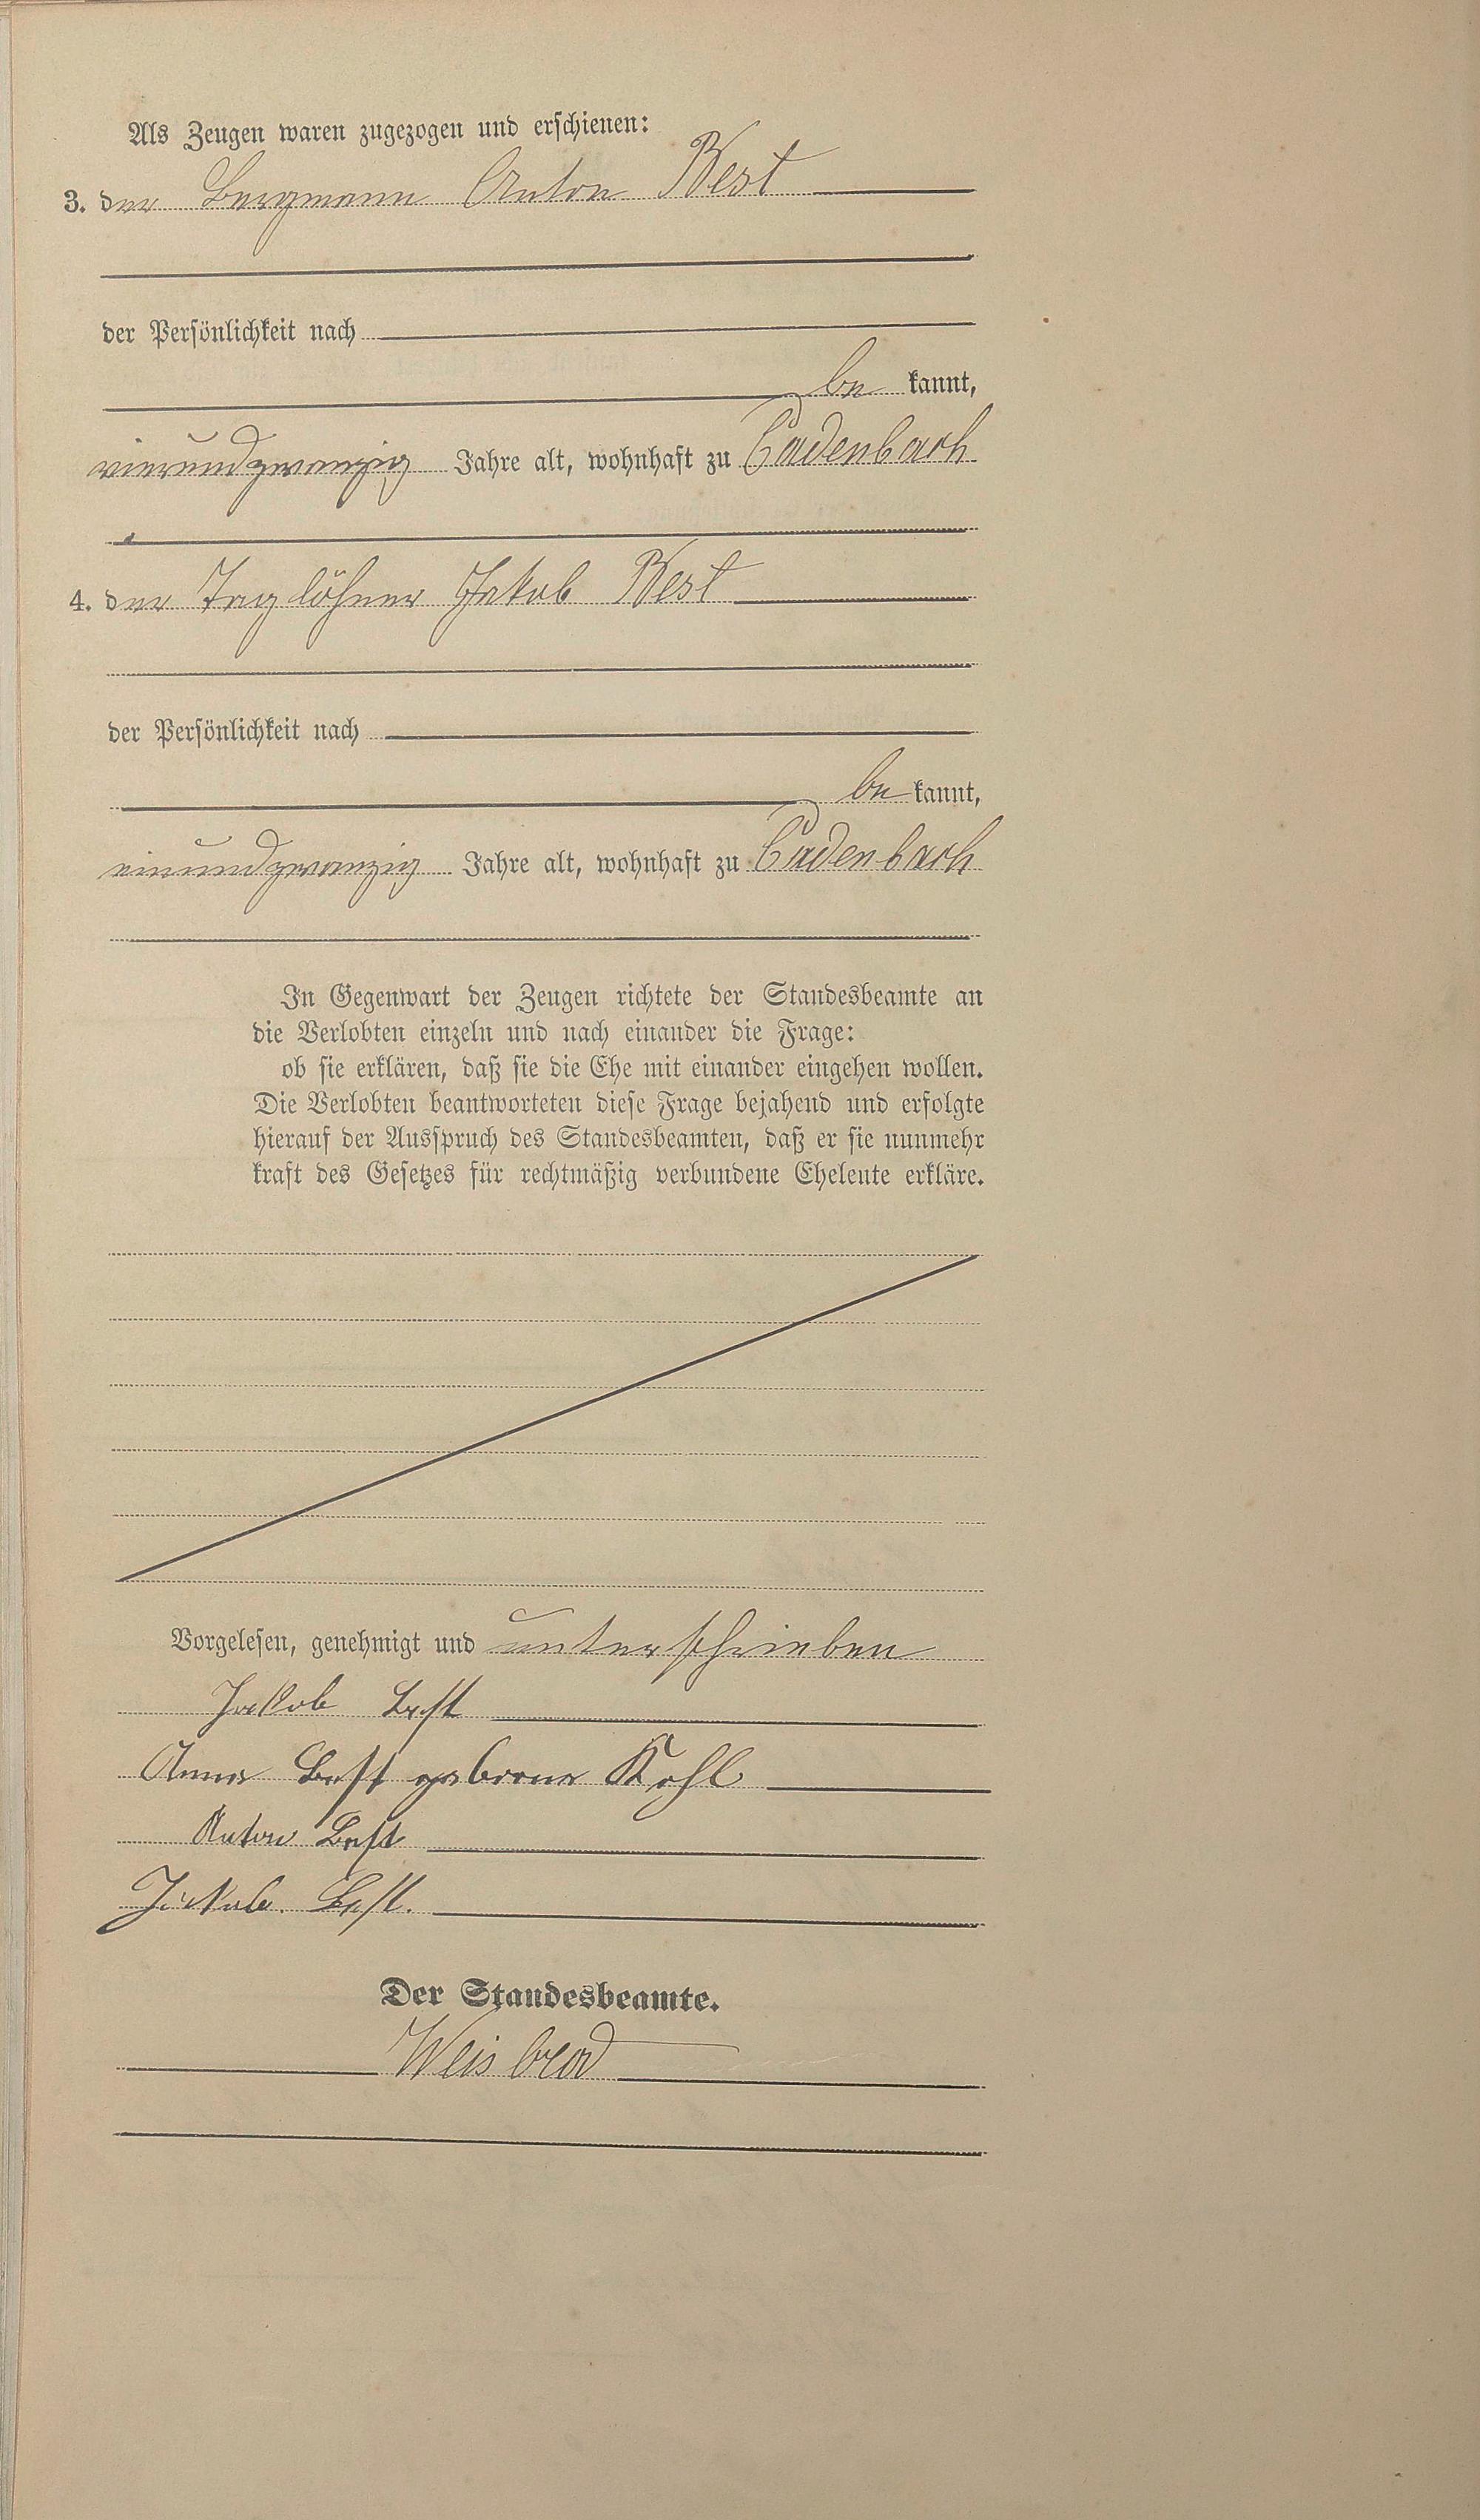 Als Zeugen waren zugezogen und erschienen:
3. der Bergmann Anton Best
der Persönlichkeit nach
be kannt,
vierundzwanzig Jahre alt, wohnhaft zu Cadenbach
4. der Taglöhner Jakob Best
der Persönlichkeit nach
be kannt,
einundzwanzig Jahre alt, wohnhaft zu Cadenbach
In Gegenwart der Zeugen richtete der Standesbeamte an
die Verlobten einzeln und nach einander die Frage:
ob sie erklären, daß sie die Ehe mit einander eingehen wollen.
Die Verlobten beantworteten diese Frage bejahend und erfolgte
hierauf der Ausspruch des Standesbeamten, daß er sie nunmehr
kraft des Gesetzes für rechtmäßig verbundene Eheleute erkläre.
Vorgelesen, genehmigt und unterschrieben
Jakob Best
Anna Best geborene Kohl
Anton Best
Jakob. Best.
Der Standesbeamte.
Weisbrod